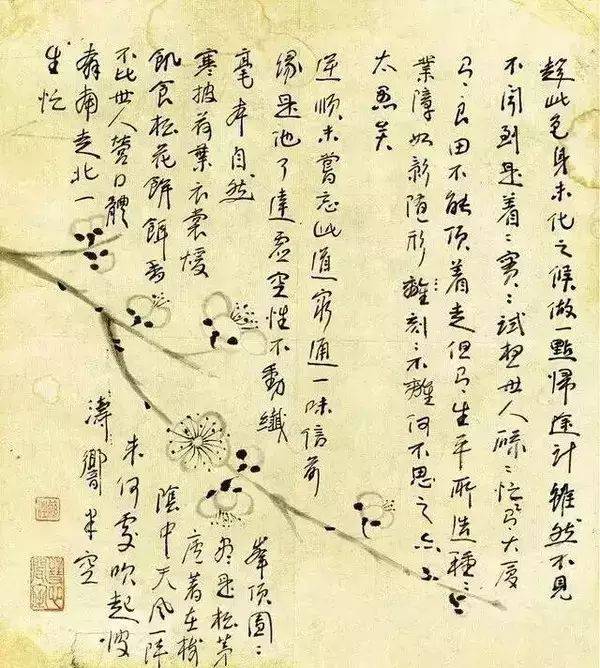 趁此色身未化之候做一點歸途計雖然不見
不聞到是着〻實〻試想世人碌〻忙大廈
良田不能頂着走但生平所造種〻之
業障如影隨形離刻〻不離何不思之亦
太愚矣
逆順未嘗忘此道窮通一味信前
緣是他了達虛空性不動纖
毫本自然
寒披荷葉衣裳煖
飢食松花餅餌香
不比世人營口體
奔南走北一
生忙
峯頂團〻
盡是松茅
著在
陰中天風一陣
來何處吹起波
濤響半空